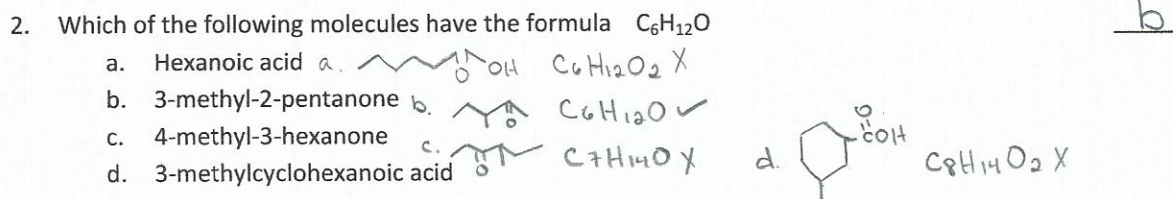 2. Which of the following molecules have the formula C₆H₁₂O b
a. Hexanoic acid a. O OH C₆H₁₂O₂ X
b. 3-methyl-2-pentanone b. O C₆H₁₂O ✓
c. 4-methyl-3-hexanone c. O C₇H₁₄O X
d. 3-methylcyclohexanoic acid d. O COH C₈H₁₄O₂ X